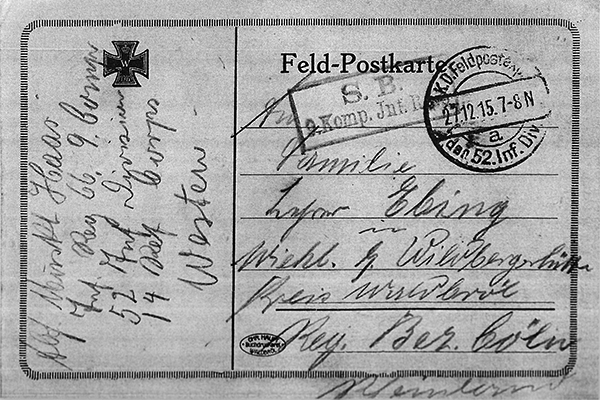 Feld-Postkarte
W
S. B.
9. Komp. Inf. R.
K.D. Feldpostexp.
27.12.15. 7-8 N
a
der 52. Inf. Div.
Abs Muskt Haas
Inf Reg 66, 9. Comp
52 Inf Division
14 Res Corps
Westen
An
Familie
Lehrer Ebing
in
Wiehl b/ Wildbergerhütte
Kreis Waldbröl
Reg. Bez. Cöln
Rheinland